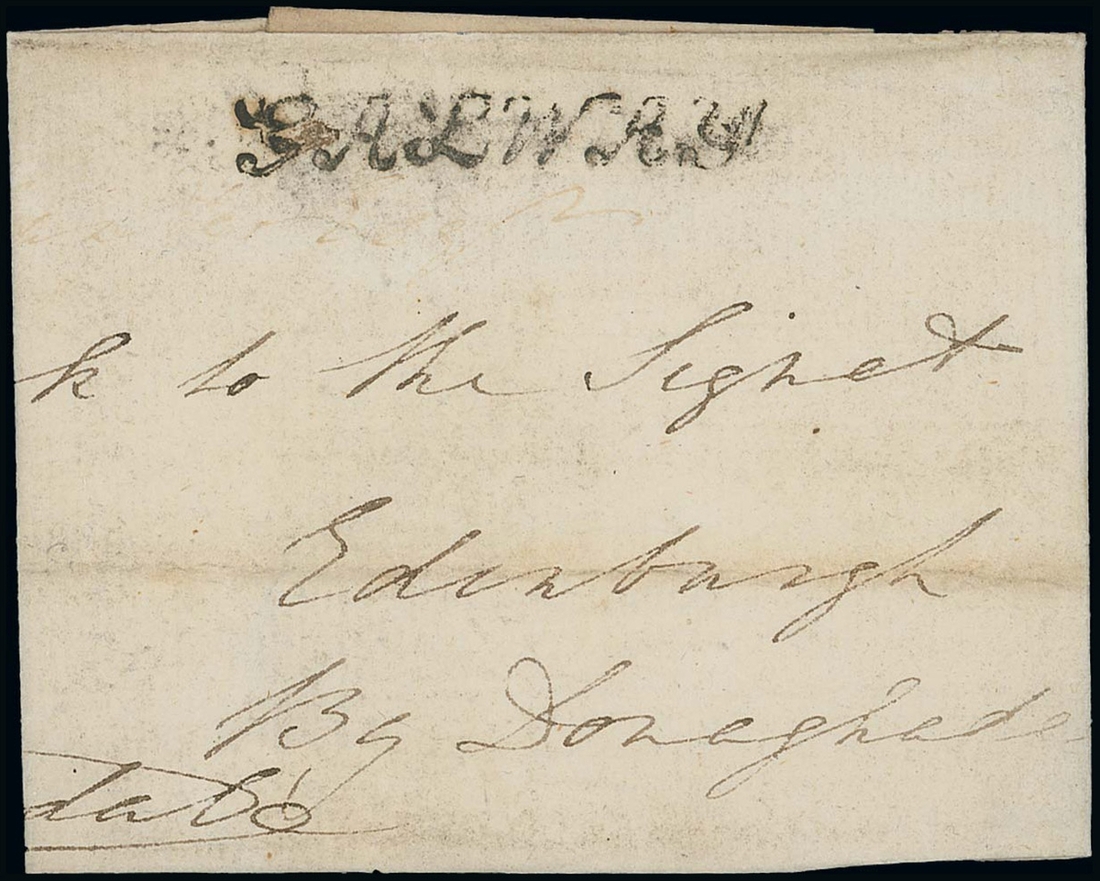 GALWAY
k to the Signet
Edinburgh
By Donaghade